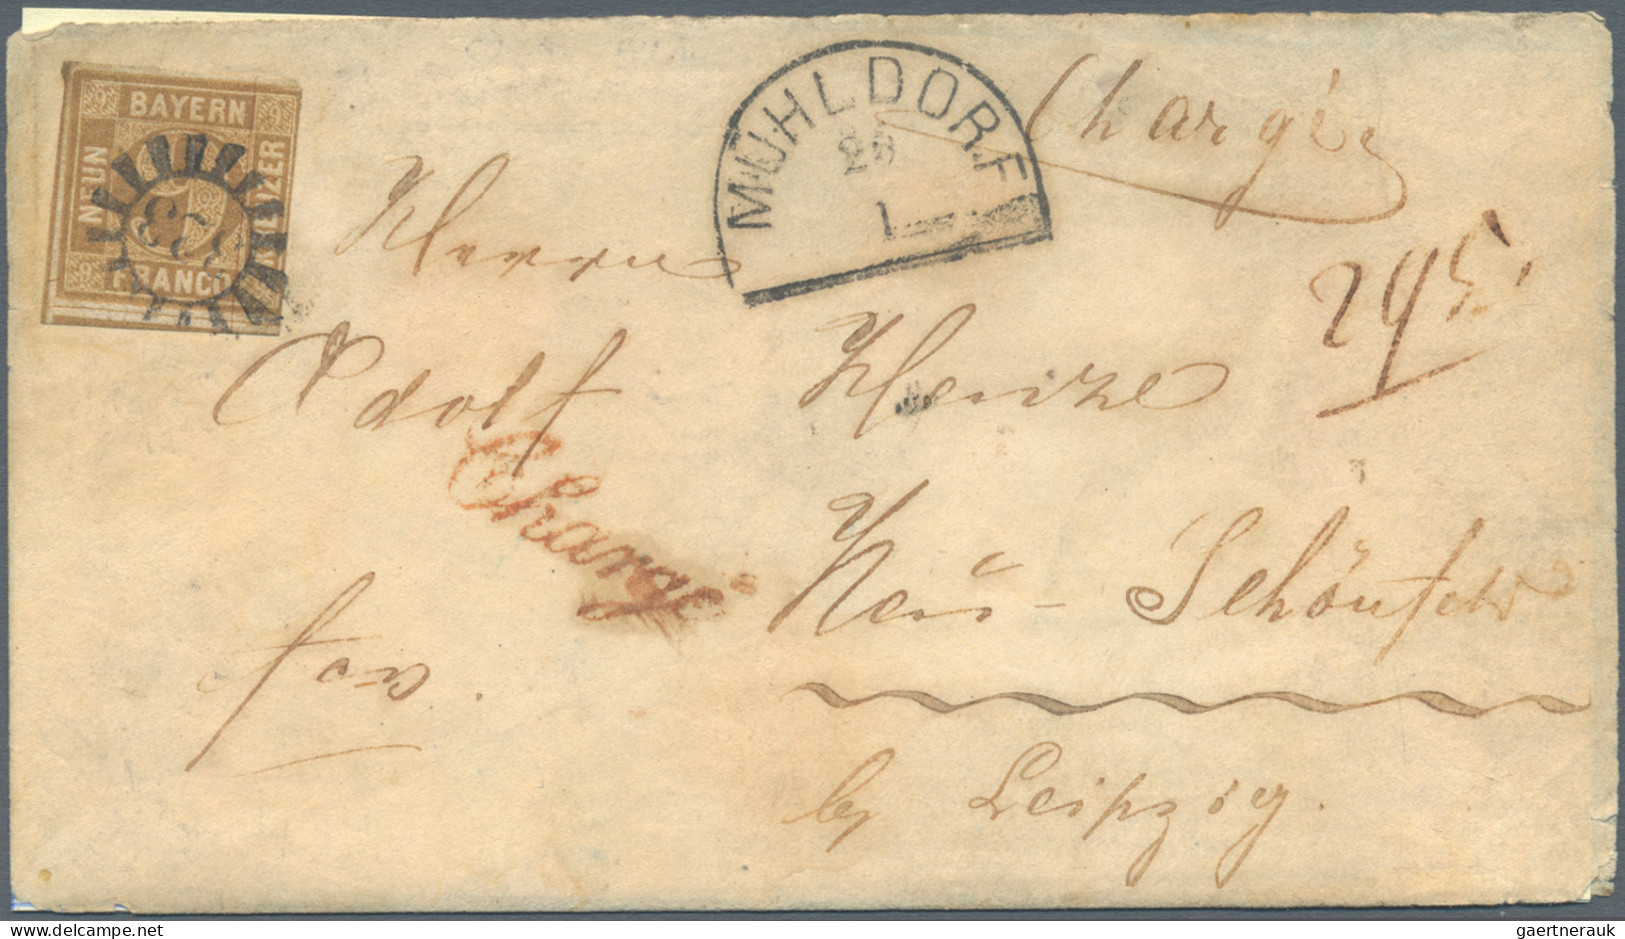 BAYERN
NEUN
KREUZER
FRANCO
9 9 9
MÜHLDORF
28
1
Chargé
Herrn
Adolf Heinze
Chargé
Neu-Schönfeld
by Leipzig.
gaertnerauk